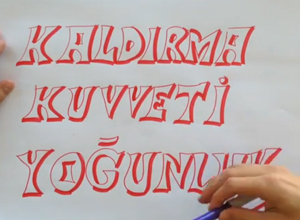 KALDIRMA
KUVVETİ
YOĞUNLUK